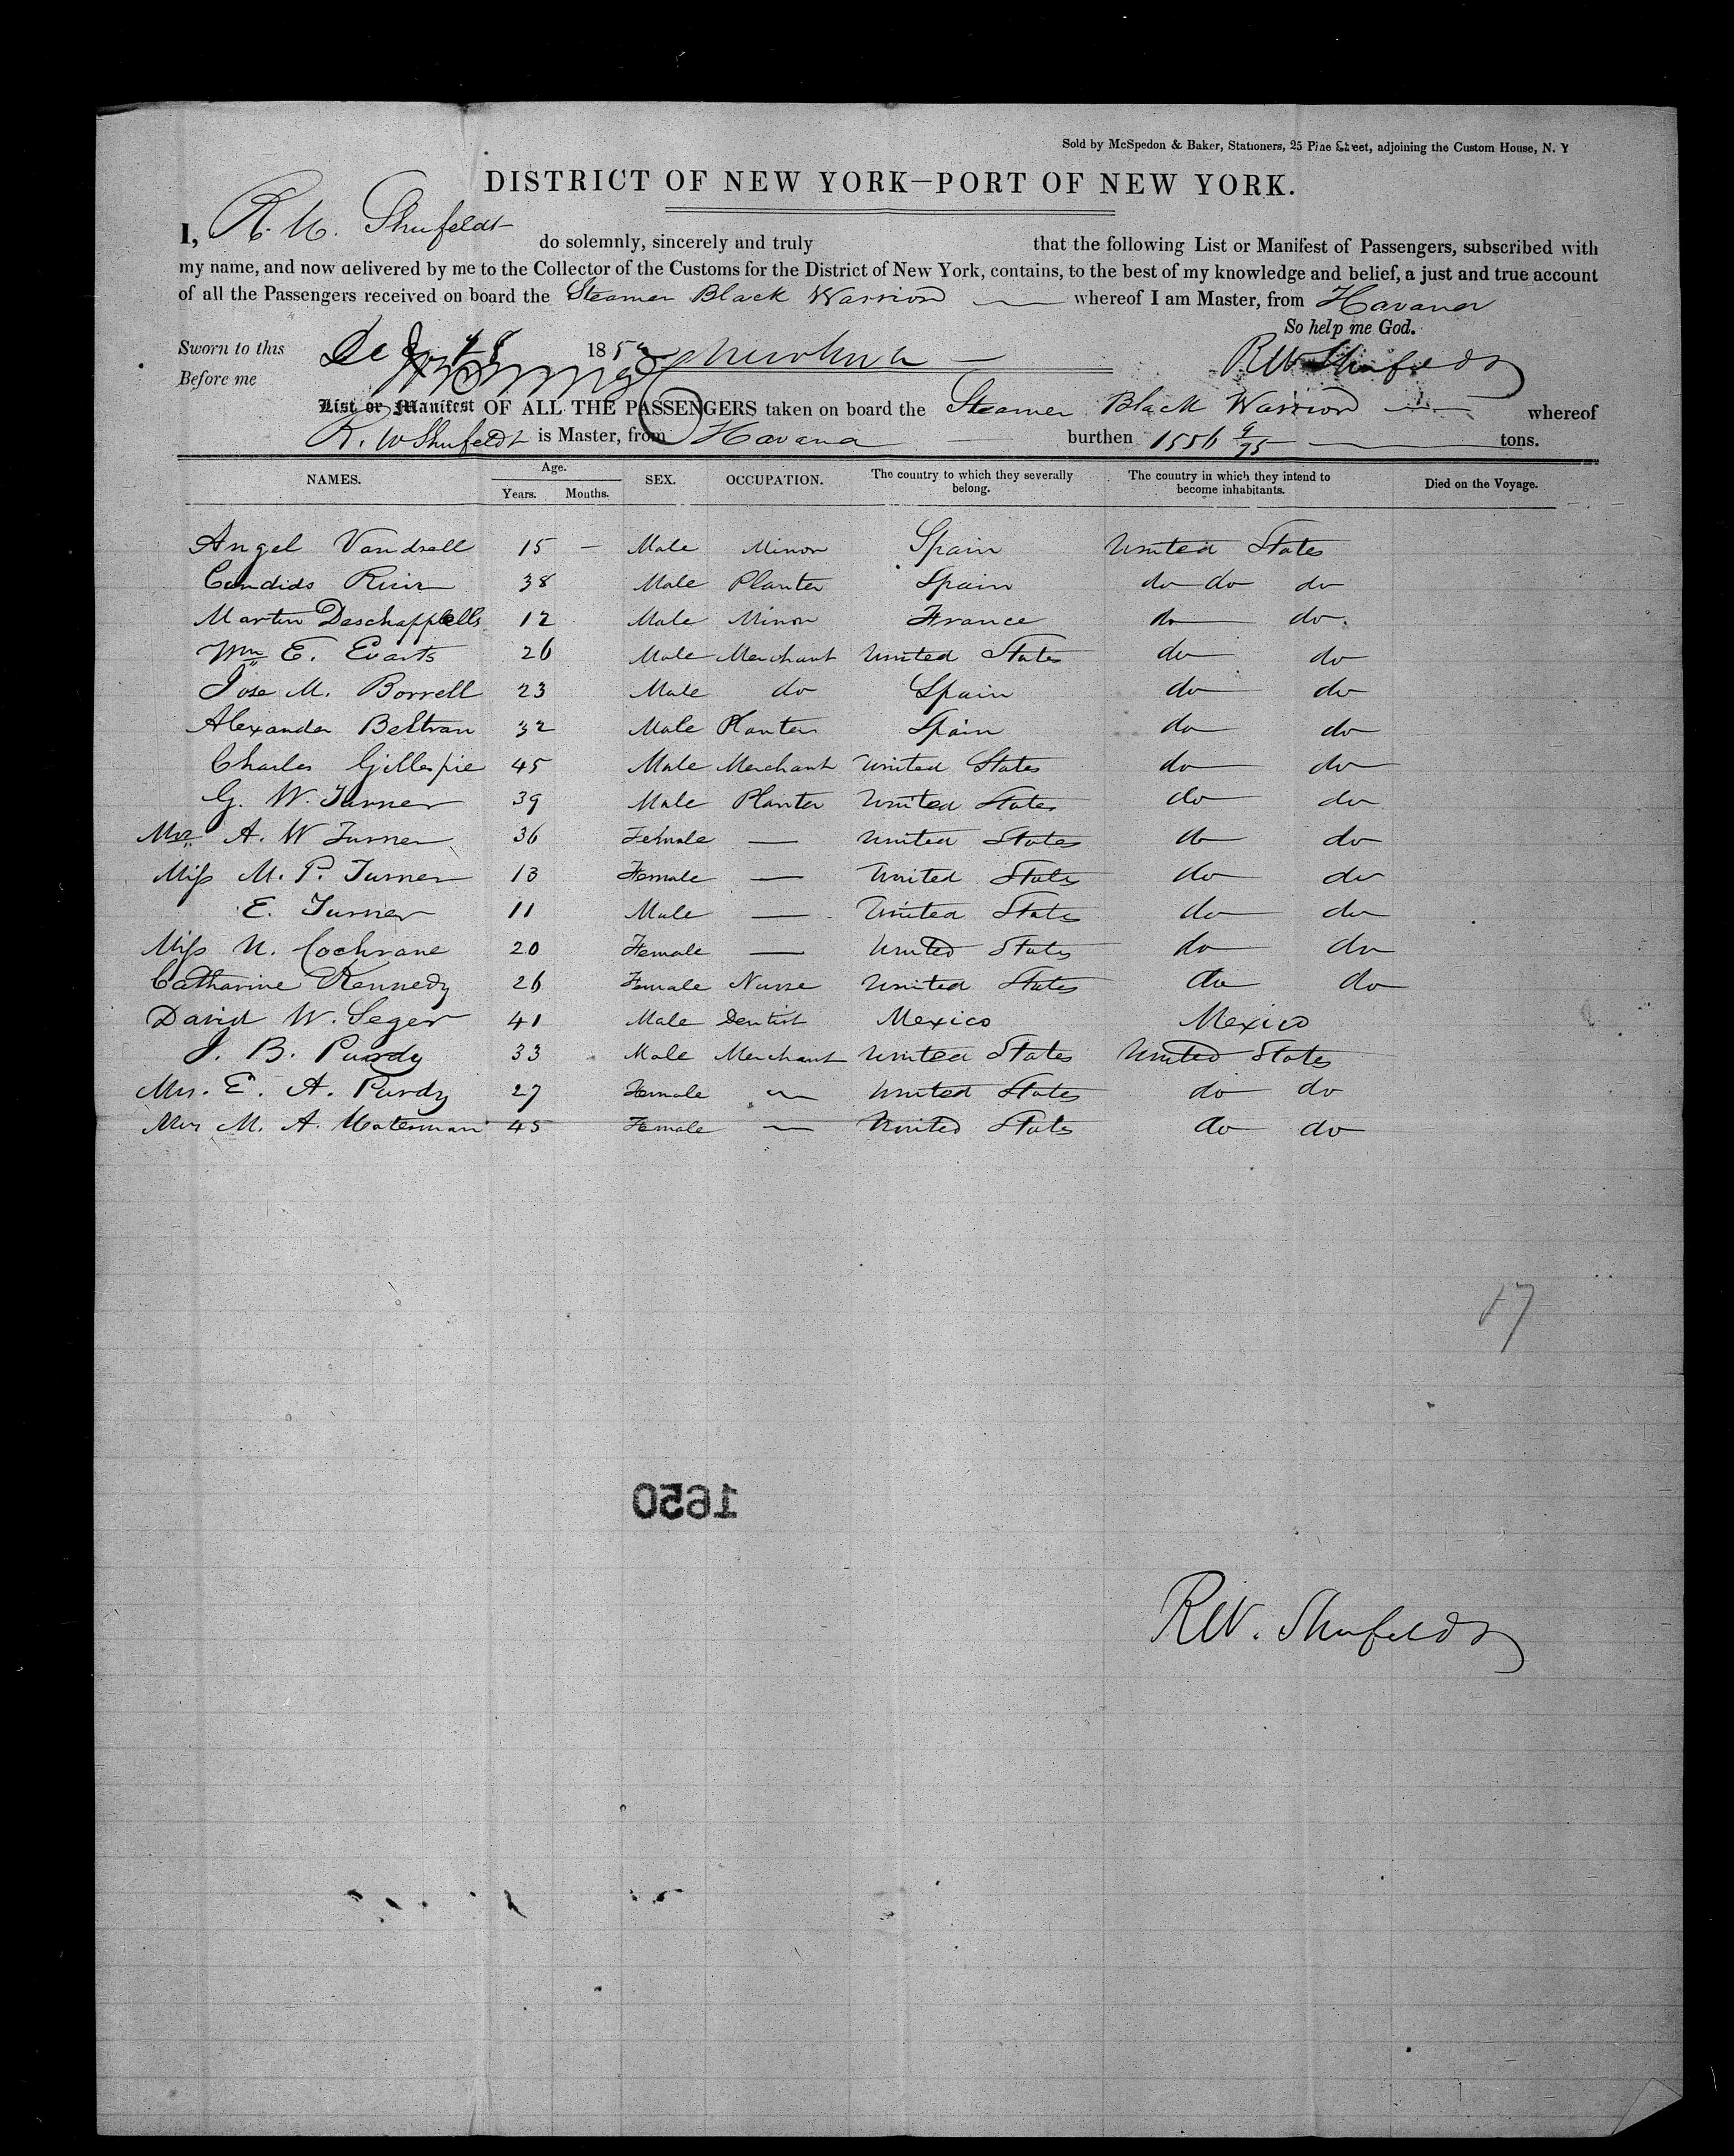 Sold by McSpedon & Baker, Stationers, 25 Pine Street, adjoining the Custom House, N. Y
DISTRICT OF NEW YORK—PORT OF NEW YORK.
I, R. W. Shufeldt do solemnly, sincerely and truly that the following List or Manifest of Passengers, subscribed with
my name, and now delivered by me to the Collector of the Customs for the District of New York, contains, to the best of my knowledge and belief, a just and true account
of all the Passengers received on board the Steamer Black Warrior whereof I am Master, from Havana
So help me God.
Sworn to this 185 RW Shufeldt
Before me
List or Manifest OF ALL THE PASSENGERS taken on board the Steamer Black Warrior whereof
R. W Shufeldt is Master, from Havana burthen 1556 9/95 tons.
NAMES. Age. Years. Months. SEX. OCCUPATION. The country to which they severally belong. The country in which they intend to become inhabitants. Died on the Voyage.
Angel Vandrell 15 — Male Minor Spain United States
Candido Ruiz 38 Male Planter Spain do do do
Martin Deschappells 12 Male Minor France do do
Wm E. Evarts 26 Male Merchant United States do do
Jose M. Borrell 23 Male do Spain do do
Alexander Beltran 32 Male Planter Spain do do
Charles Gillespie 45 Male Merchant United States do do
G. W. Turner 39 Male Planter United States do do
Mrs A. W Turner 36 Female — United States do do
Miss M. P. Turner 13 Female — United States do do
E. Turner 11 Male — United States do do
Miss N. Cochrane 20 Female — United States do do
Catharine Kennedy 26 Female Nurse United States do do
David W. Seger 41 Male Dentist Mexico Mexico
J. B. Purdy 33 Male Merchant United States United States
Mrs. E. A. Purdy 27 Female — United States do do
Mrs M. A. Waterman 45 Female — United States do do
17
1650
RW. Shufeldt